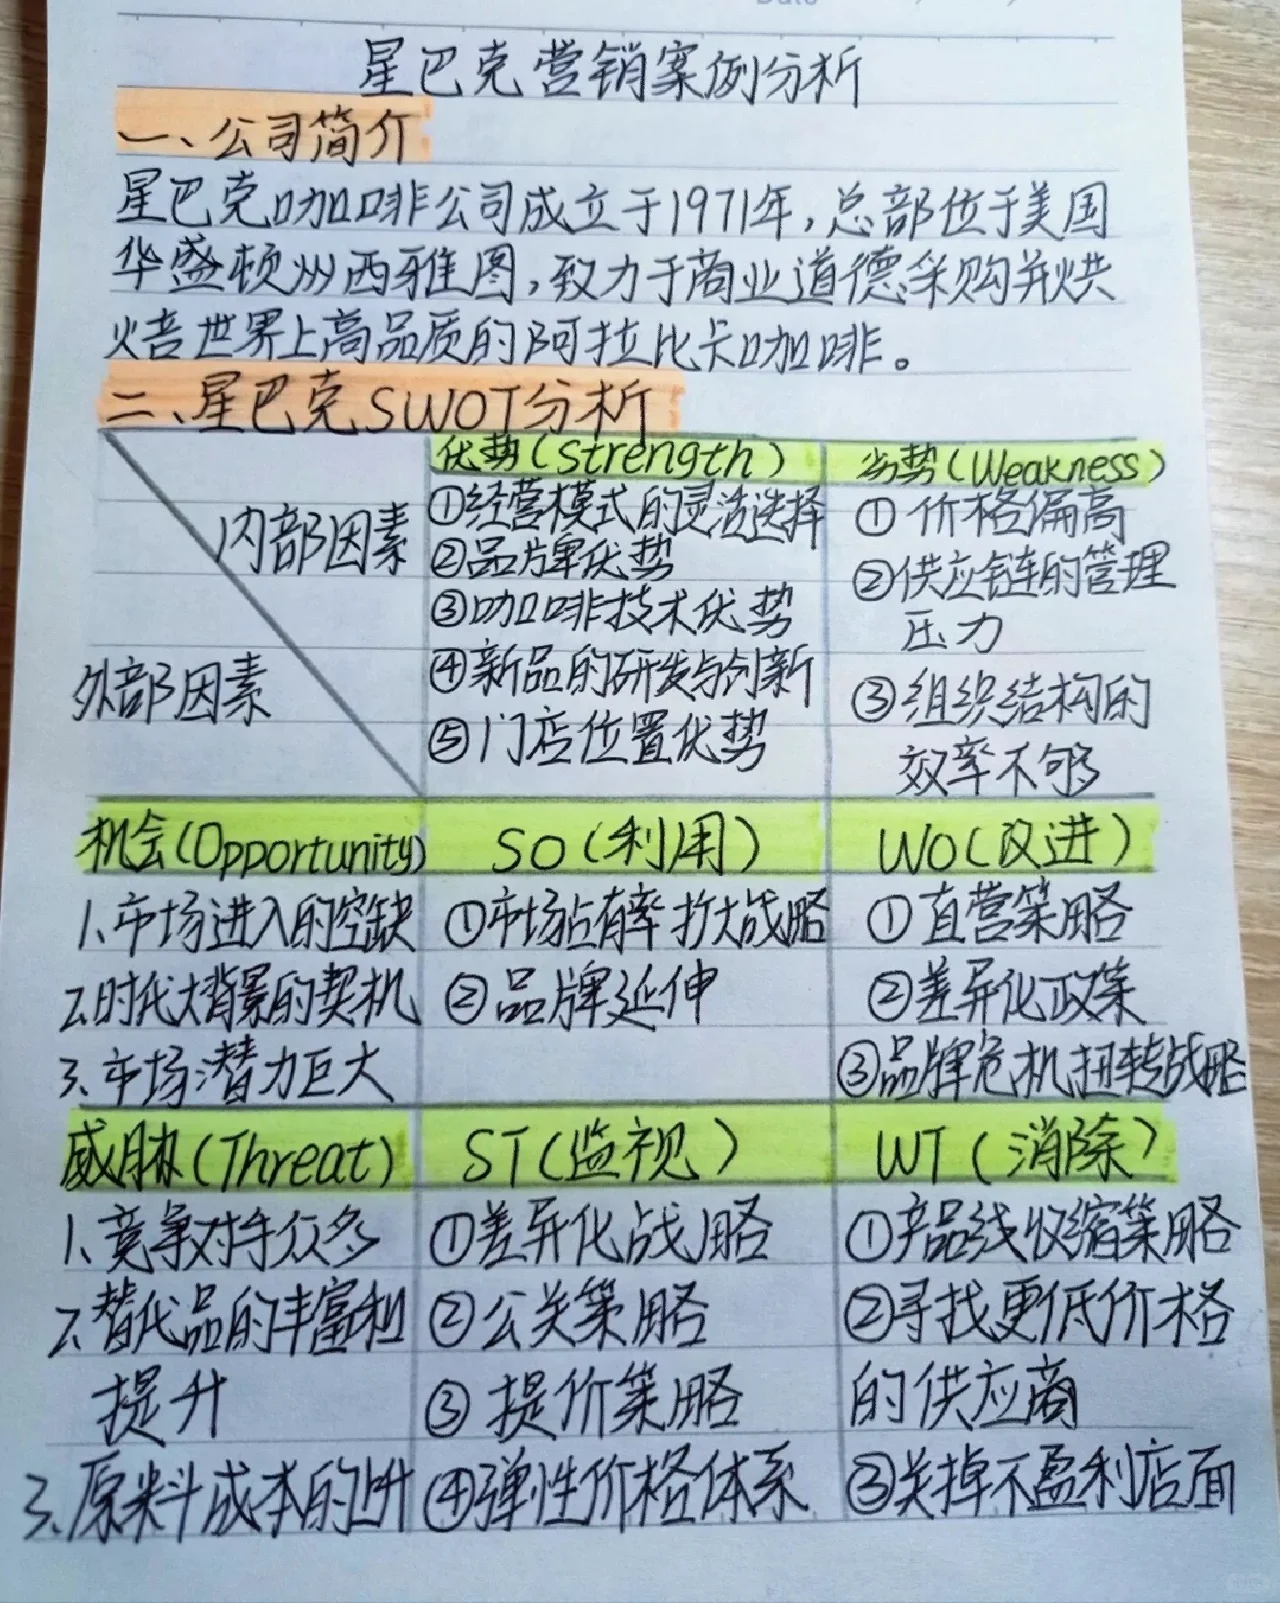 Date
星巴克营销案例分析
一、公司简介
星巴克咖啡公司成立于1971年,总部位于美国
华盛顿州西雅图,致力于商业道德采购并烘
焙世界上高品质的阿拉比卡咖啡。
二、星巴克SWOT分析
内部因素
外部因素
优势(Strength)
①经营模式的灵活选择
②品牌优势
③咖啡技术优势
④新品的研发与创新
⑤门店位置优势
劣势(Weakness)
①价格偏高
②供应链的管理
压力
③组织结构的
效率不够
机会(Opportunity)
1、市场进入的空缺
2、时代大背景的契机
3、市场潜力巨大
SO(利用)
①市场占有率扩大战略
②品牌延伸
WO(改进)
①直营策略
②差异化政策
③品牌危机扭转战略
威胁(Threat)
1、竞争对手众多
2、替代品的丰富和
提升
3、原料成本的上升
ST(监视)
①差异化战略
②公关策略
③提价策略
④弹性价格体系
WT(消除)
①产品线收缩策略
②寻找更低价格
的供应商
③关掉不盈利店面